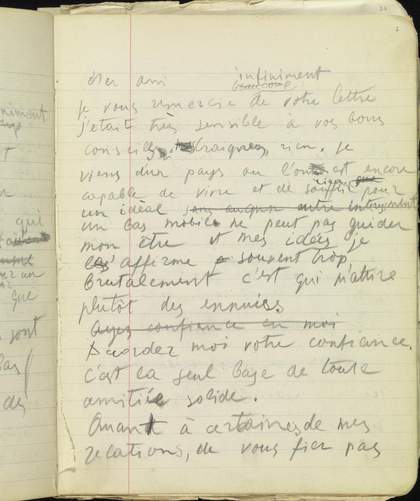 cher ami infiniment
beaucoup
je vous remercie de votre lettre
j'etait très sensible à vos bons
conseils craignez rien. je
viens d'un pays ou l'on est encore
capable de vivre et de souffrir pour
un idéal sans aucun autre
un bas mobile ne peut pas guider
mon être et mes idées je
les affirme souvent trop
Brutalement c'est qui m'attire
plutot des ennuis.
ayez confiance en moi
Accordez moi votre confiance.
c'est la seul base de toute
amitiée solide.
Quant à certaines de mes
relations, de vous fier pas